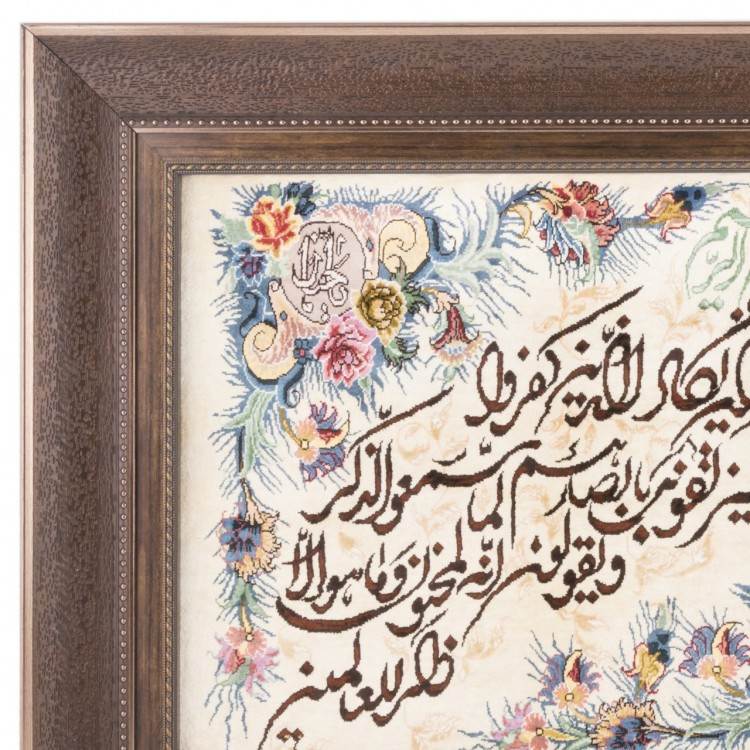 یکاد الذین کفروا
یزلقونک بابصارهم لما سمعوا الذکر
ویقولون انه لمجنون وما هو الا
ذکر للعالمین